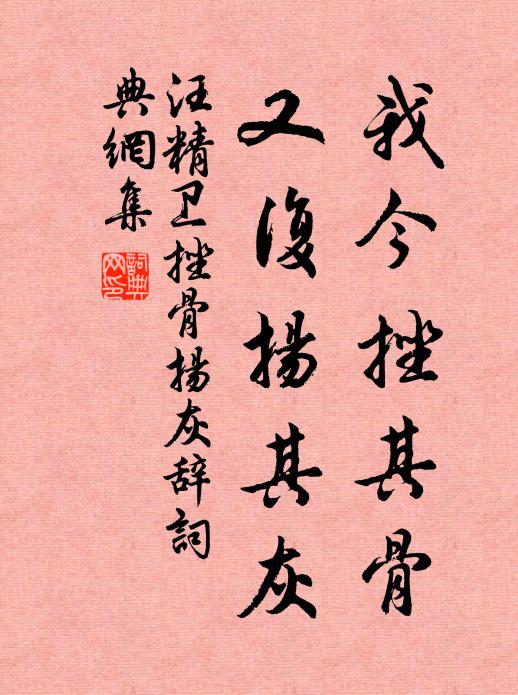 我今挫其骨
又復揚其灰
汪精卫挫骨揚灰辞詞
典網集
詞典
网印